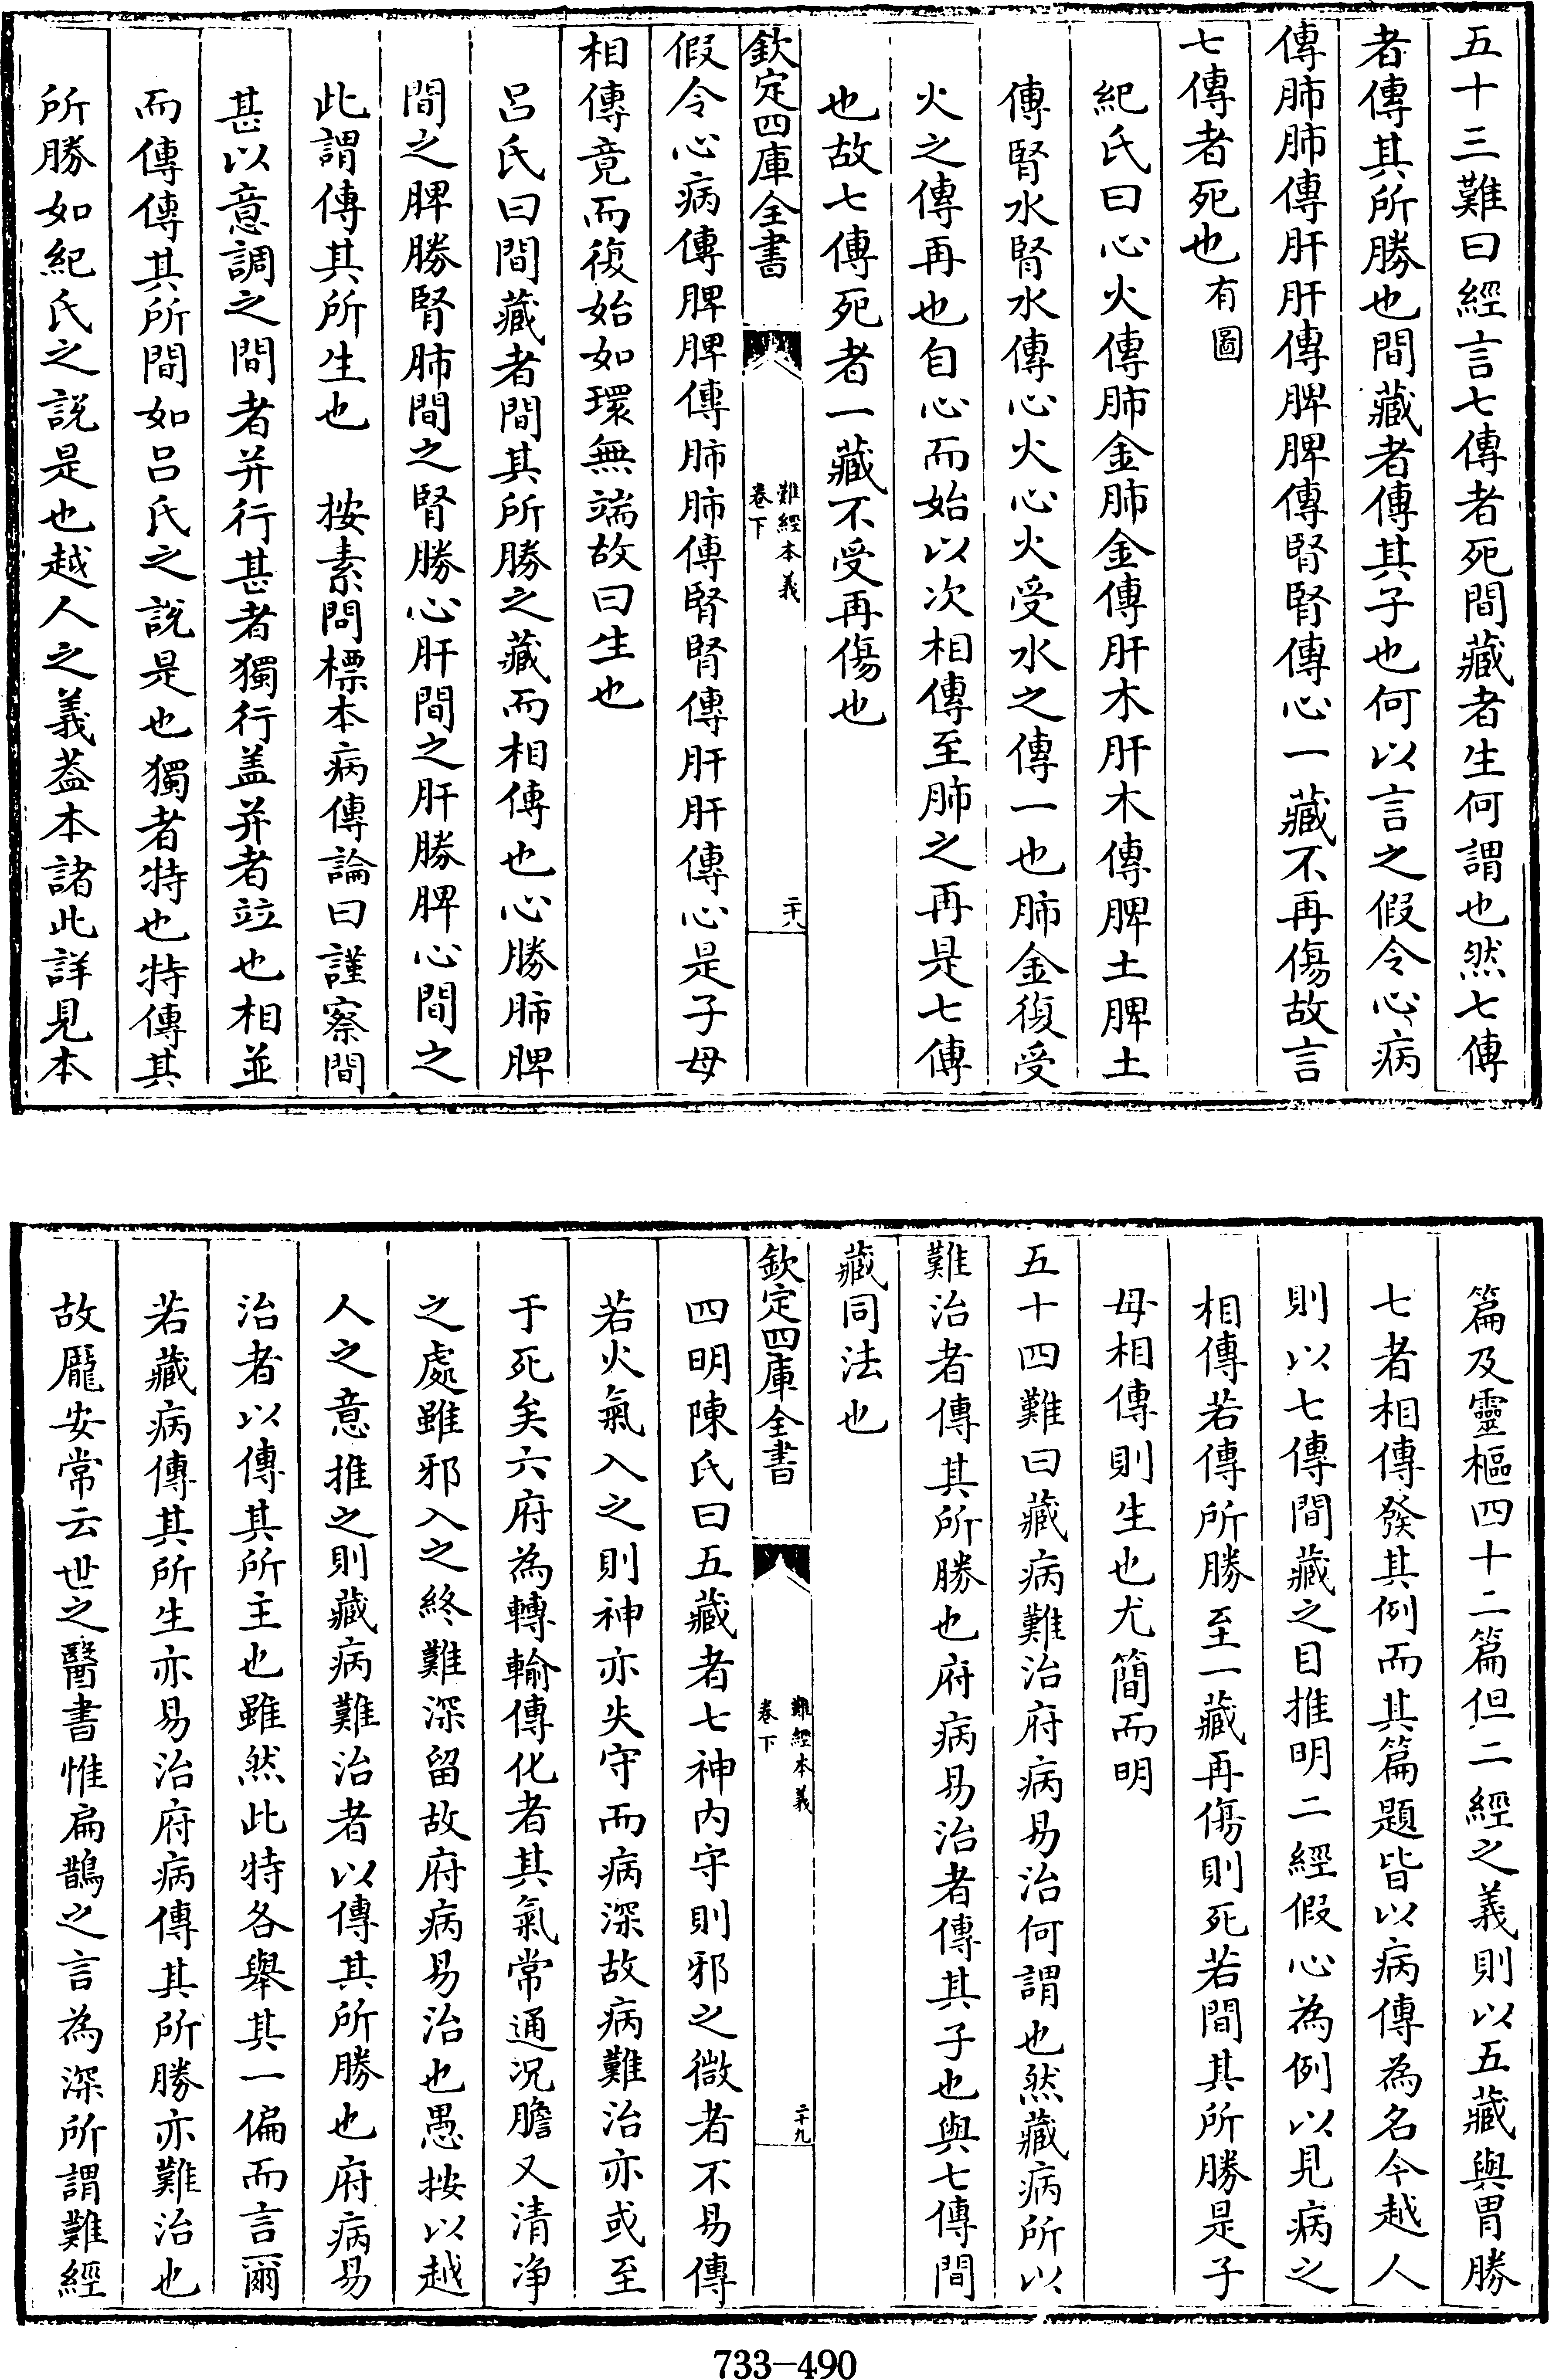 五十三難曰經言七傳者死間藏者生何謂也然七傳
者傳其所勝也間藏者傳其子也何以言之假令心病
傳肺肺傳肝肝傳脾脾傳腎腎傳心一藏不再傷故言
七傳者死也有圖
紀氏曰心火傳肺金肺金傳肝木肝木傳脾土脾土
傳腎水腎水傳心火心火受水之傳一也肺金復受
火之傳再也自心而始以次相傳至肺之再是七傳
也故七傳死者一藏不受再傷也
欽定四庫全書
難經本義
卷下
二十八
假令心病傳脾脾傳肺肺傳腎腎傳肝肝傳心是子母
相傳竟而復始如環無端故曰生也
呂氏曰間藏者間其所勝之藏而相傳也心勝肺脾
間之脾勝腎肺間之腎勝心肝間之肝勝脾心間之
此謂傳其所生也 按素問標本病傳論曰謹察間
甚以意調之間者并行甚者獨行盖并者竝也相並
而傳傳其所間如呂氏之説是也獨者特也特傳其
所勝如紀氏之説是也越人之義蓋本諸此詳見本
篇及靈樞四十二篇但二經之義則以五藏與胃勝
七者相傳發其例而其篇題皆以病傳為名今越人
則以七傳間藏之目推明二經假心為例以見病之
相傳若傳所勝至一藏再傷則死若間其所勝是子
母相傳則生也尤簡而明
五十四難曰藏病難治府病易治何謂也然藏病所以
難治者傳其所勝也府病易治者傳其子也與七傳間
藏同法也
欽定四庫全書
難經本義
卷下
二十九
四明陳氏曰五藏者七神内守則邪之微者不易傳
若火氣入之則神亦失守而病深故病難治亦或至
于死矣六府為轉輸傳化者其氣常通况膽又清净
之處雖邪入之終難深留故府病易治也愚按以越
人之意推之則藏病難治者以傳其所勝也府病易
治者以傳其所主也雖然此特各舉其一偏而言爾
若藏病傳其所生亦易治府病傳其所勝亦難治也
故龐安常云世之醫書惟扁鵲之言為深所謂難經
733-490